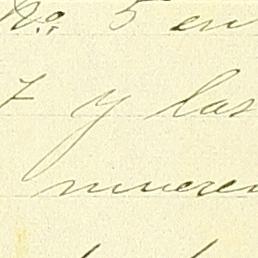 No. 5 en
7 y las